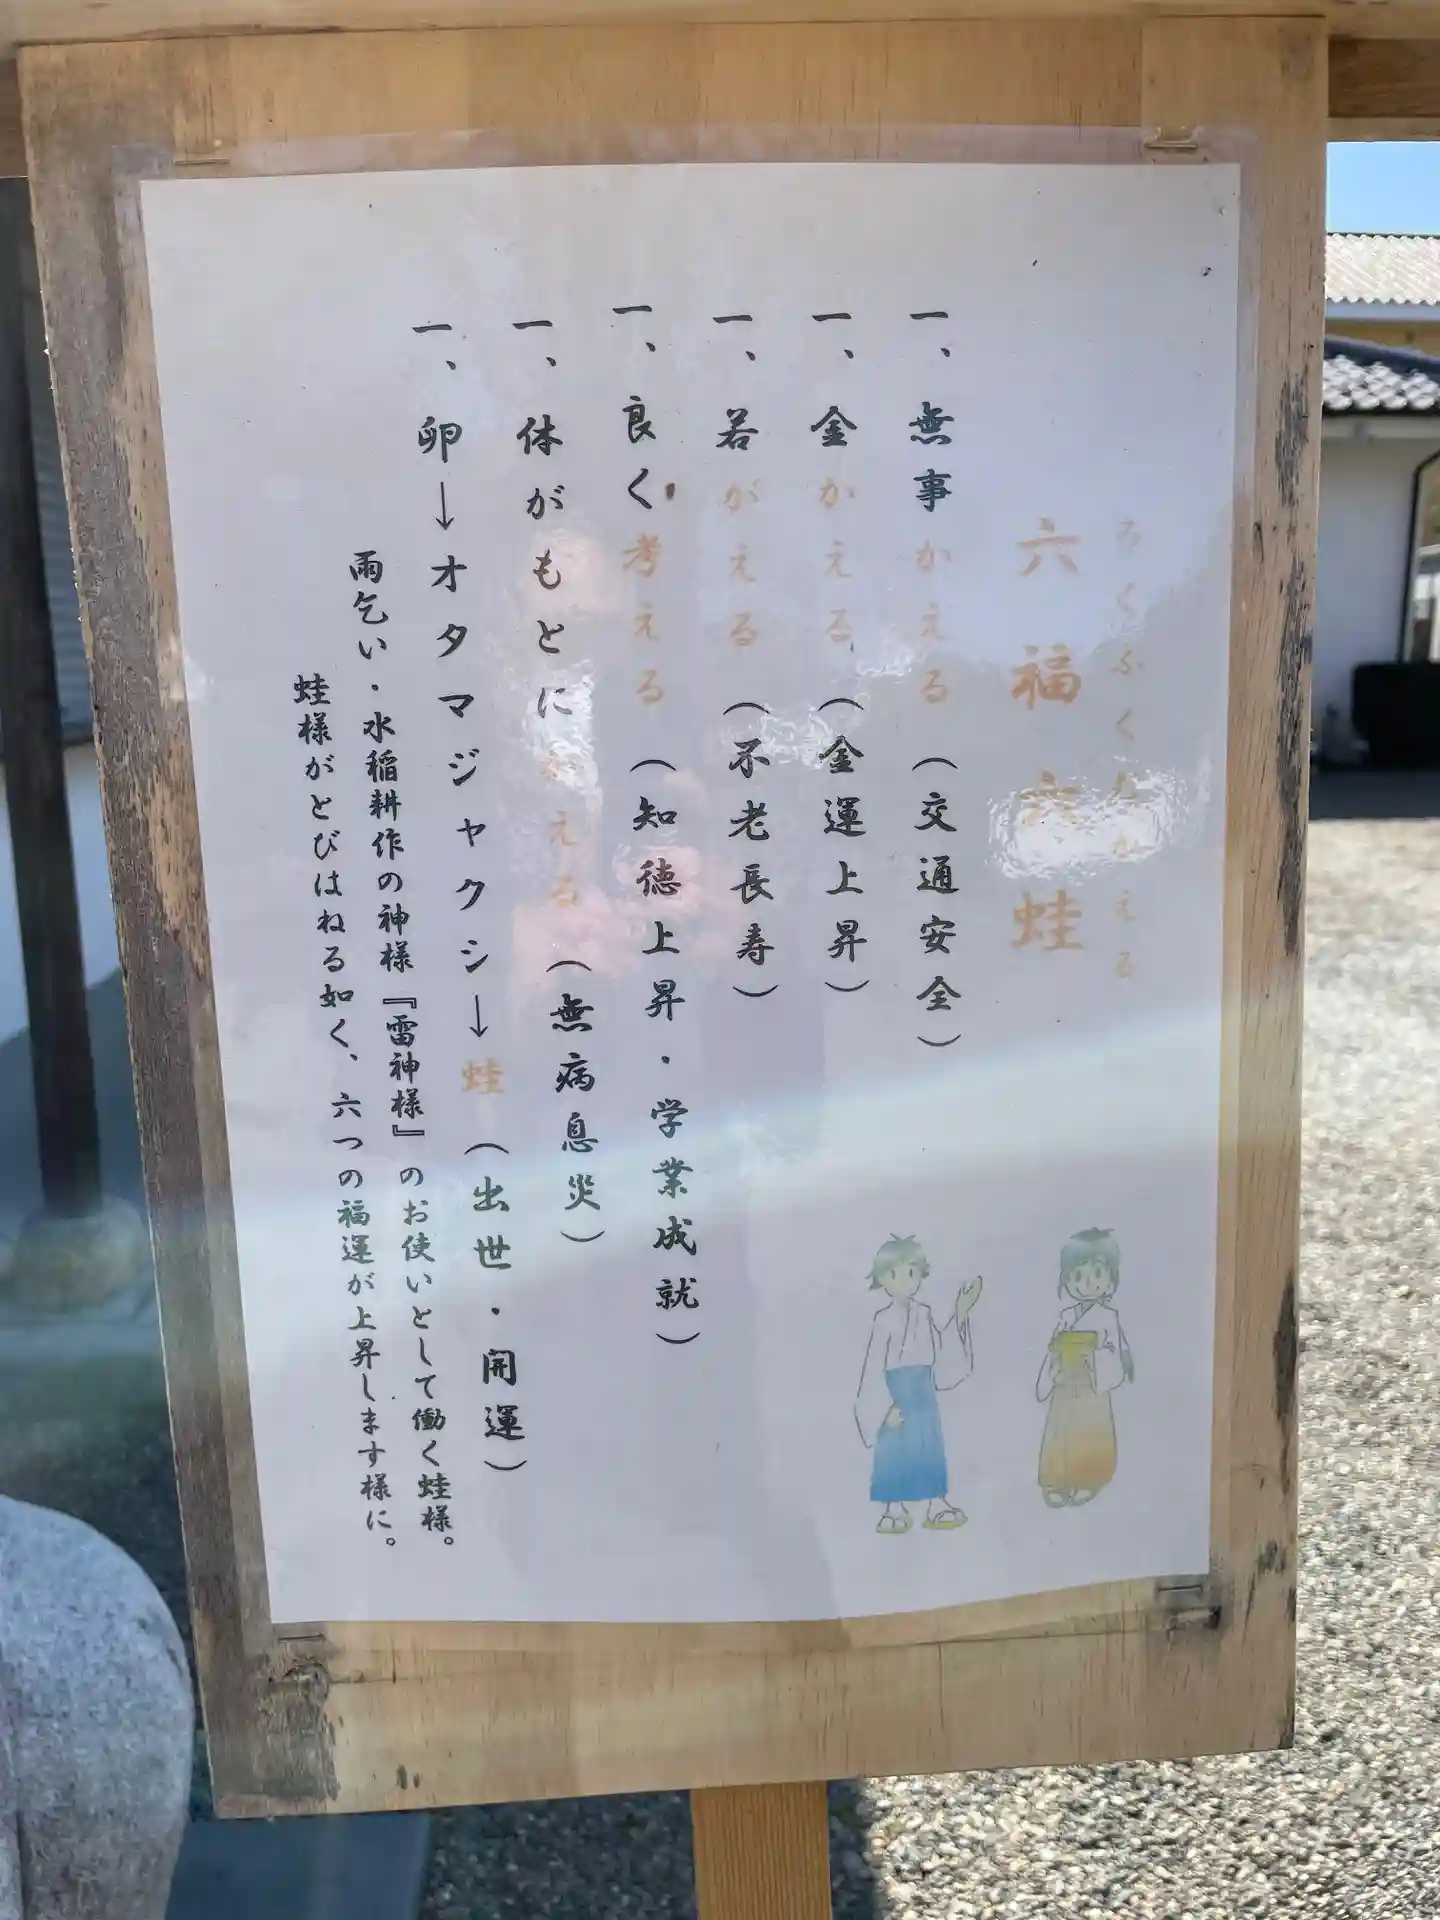 ろくふくむかえる
六福六蛙
一、無事かえる（交通安全）
一、金かえる（金運上昇）
一、若がえる（不老長寿）
一、良く考える（知徳上昇・学業成就）
一、体がもとにかえる（無病息災）
一、卵→オタマジャクシ→蛙（出世・開運）
雨乞い・水稲耕作の神様『雷神様』のお使いとして働く蛙様。
蛙様がとびはねる如く、六つの福運が上昇します様に。